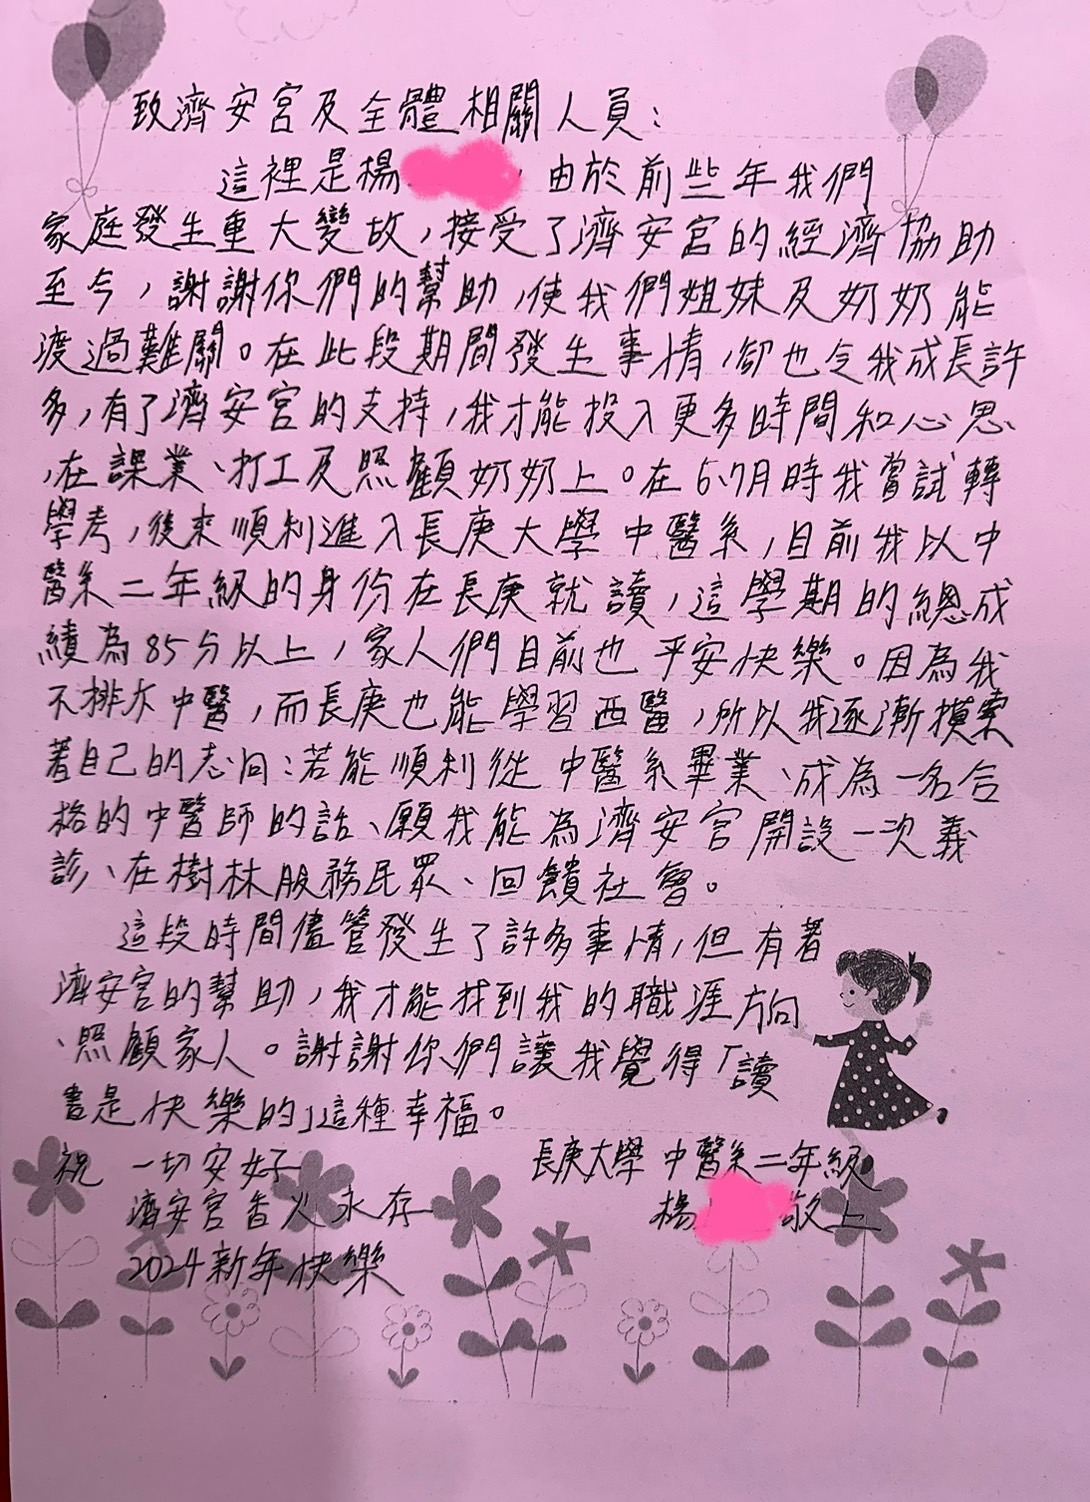 致濟安宮及全體相關人員：
這裡是楊，由於前些年我們
家庭發生重大變故，接受了濟安宮的經濟協助
至今，謝謝你們的幫助，使我們姐妹及奶奶能
渡過難關。在此段期間發生事情，卻也令我成長許
多，有了濟安宮的支持，我才能投入更多時間和心思
，在課業、打工及照顧奶奶上。在6、7月時我嘗試轉
學考，後來順利進入長庚大學中醫系，目前我以中
醫系二年級的身份在長庚就讀，這學期的總成
績為85分以上，家人們目前也平安快樂。因為我
不排斥中醫，而長庚也能學習西醫，所以我逐漸摸索
著自己的志向：若能順利從中醫系畢業、成為一名合
格的中醫師的話、願我能為濟安宮開設一次義
診、在樹林服務民眾、回饋社會。
這段時間儘管發生了許多事情，但有著
濟安宮的幫助，我才能找到我的職涯方向
、照顧家人。謝謝你們讓我覺得「讀
書是快樂的」這種幸福。
祝 一切安好
濟安宮香火永存
2024新年快樂
長庚大學 中醫系二年級
楊 敬上